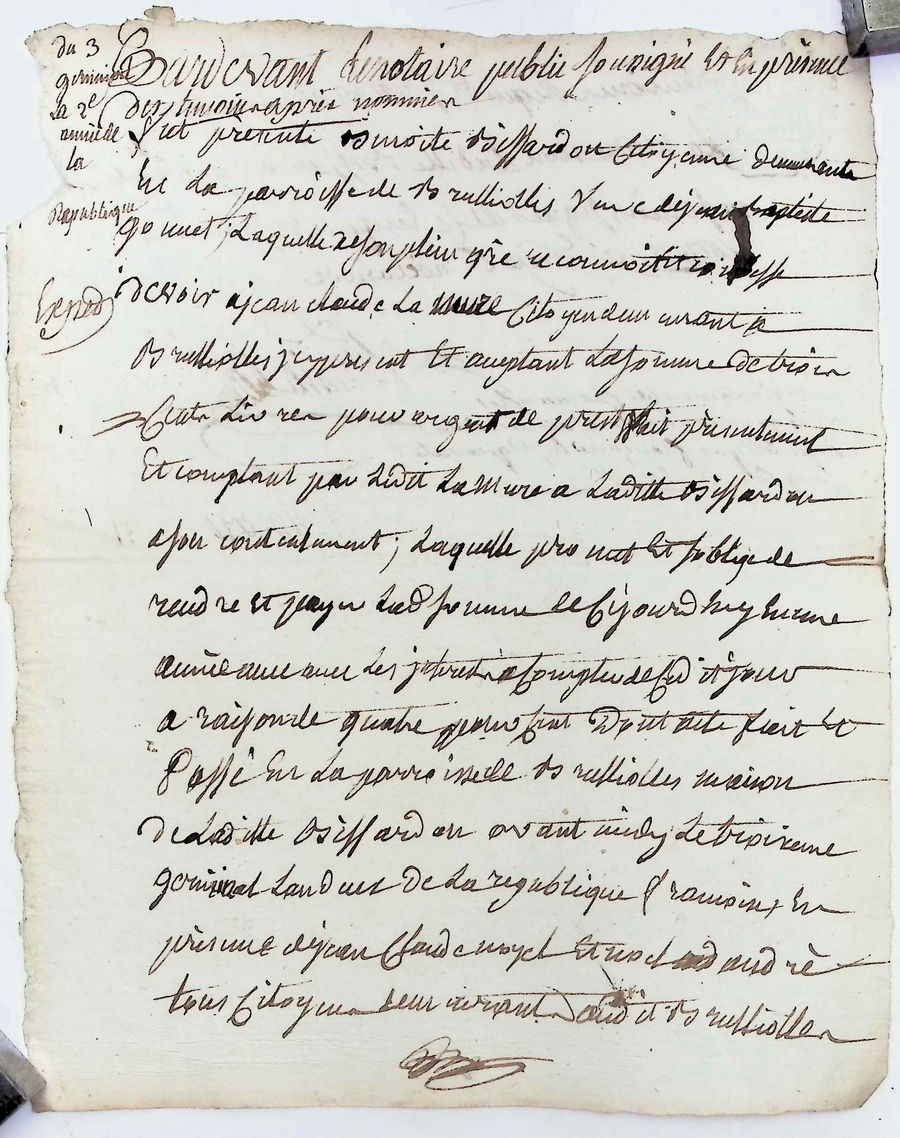 du 3
germinal
la 2e
année de
la
Republique
Expedié
Pardevant le notaire public sousigné Et En présence
des temoins après nommés
fut présente Benoite Biffardon Citoyenne demeurante
En La parroisse de Brulliolles Veuve de jean Baptiste
gounet; Laquelle de son plein gré reconnoit
devoir a jean claude La mure Citoyen demeurant a
Brulliolles jcy present Et aceptant La somme de trois
Cents Livres pour argent de prest fait présentement
Et comptant par Ledit La Mure a Laditte Biffardon
a son contentement; Laquelle promet Et soblige de
rendre Et payer Lad somme de Cejourdhuy En une
année avec Les jnterets a Compter de Cedit jour
a raison de quatre pour Cent Dont acte fait Et
Passé En La parroisse de Brulliolles maison
de Laditte Biffardon avant midy Le troisieme
germinal Lan deux de La republique francoise En
présence de jean Claude noyel Et noel andré
tous Citoyens demeurants audit Brulliolles